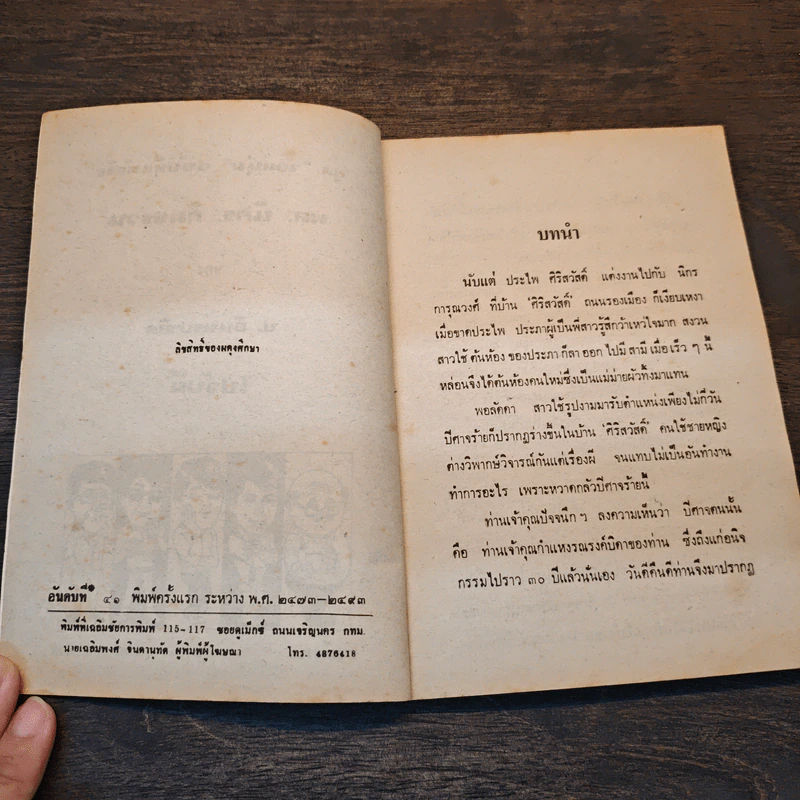 ลิขสิทธิ์ของผดุงศึกษา
อันดับที่ ๔๑ พิมพ์ครั้งแรก ระหว่าง พ.ศ. ๒๔๗๓-๒๔๙๓
พิมพ์ที่เฉลิมชัยการพิมพ์ 115-117 ซอยดูเม็กซ์ ถนนเจริญนคร กทม.
นายเฉลิมพงศ์ จินดานุทัด ผู้พิมพ์ผู้โฆษณา โทร. 4376418
บทนำ
นับแต่ ประไพ ศิริสวัสดิ์ แต่งงานไปกับ นิกร
การุณวงศ์ ที่บ้าน 'ศิริสวัสดิ์' ถนนรองเมือง ก็เงียบเหงา
เมื่อขาดประไพ ประภาผู้เป็นพี่สาวรู้สึกว้าเหว่ใจมาก สงวน
สาวใช้ ต้นห้อง ของประภา ก็ลา ออก ไปมี สามี เมื่อ เร็ว ๆ นี้
หล่อนจึงได้ต้นห้องคนใหม่ซึ่งเป็นแม่ม่ายผัวทิ้งมาแทน
พอลัดดา สาวใช้รูปงามมารับตำแหน่งเพียงไม่กี่วัน
ปีศาจร้ายก็ปรากฏร่างขึ้นในบ้าน 'ศิริสวัสดิ์' คนใช้ชายหญิง
ต่างวิพากษ์วิจารณ์กันแต่เรื่องผี จนแทบไม่เป็นอันทำงาน
ทำการอะไร เพราะหวาดกลัวปีศาจร้ายนี้
ท่านเจ้าคุณปัจจนึก ฯ ลงความเห็นว่า ปีศาจตนนั้น
คือ ท่านเจ้าคุณกำแหงรณรงค์บิดาของท่าน ซึ่งถึงแก่อนิจ
กรรมไปราว ๓๐ ปีแล้วนั่นเอง วันดีคืนดีท่านจึงมาปรากฏ